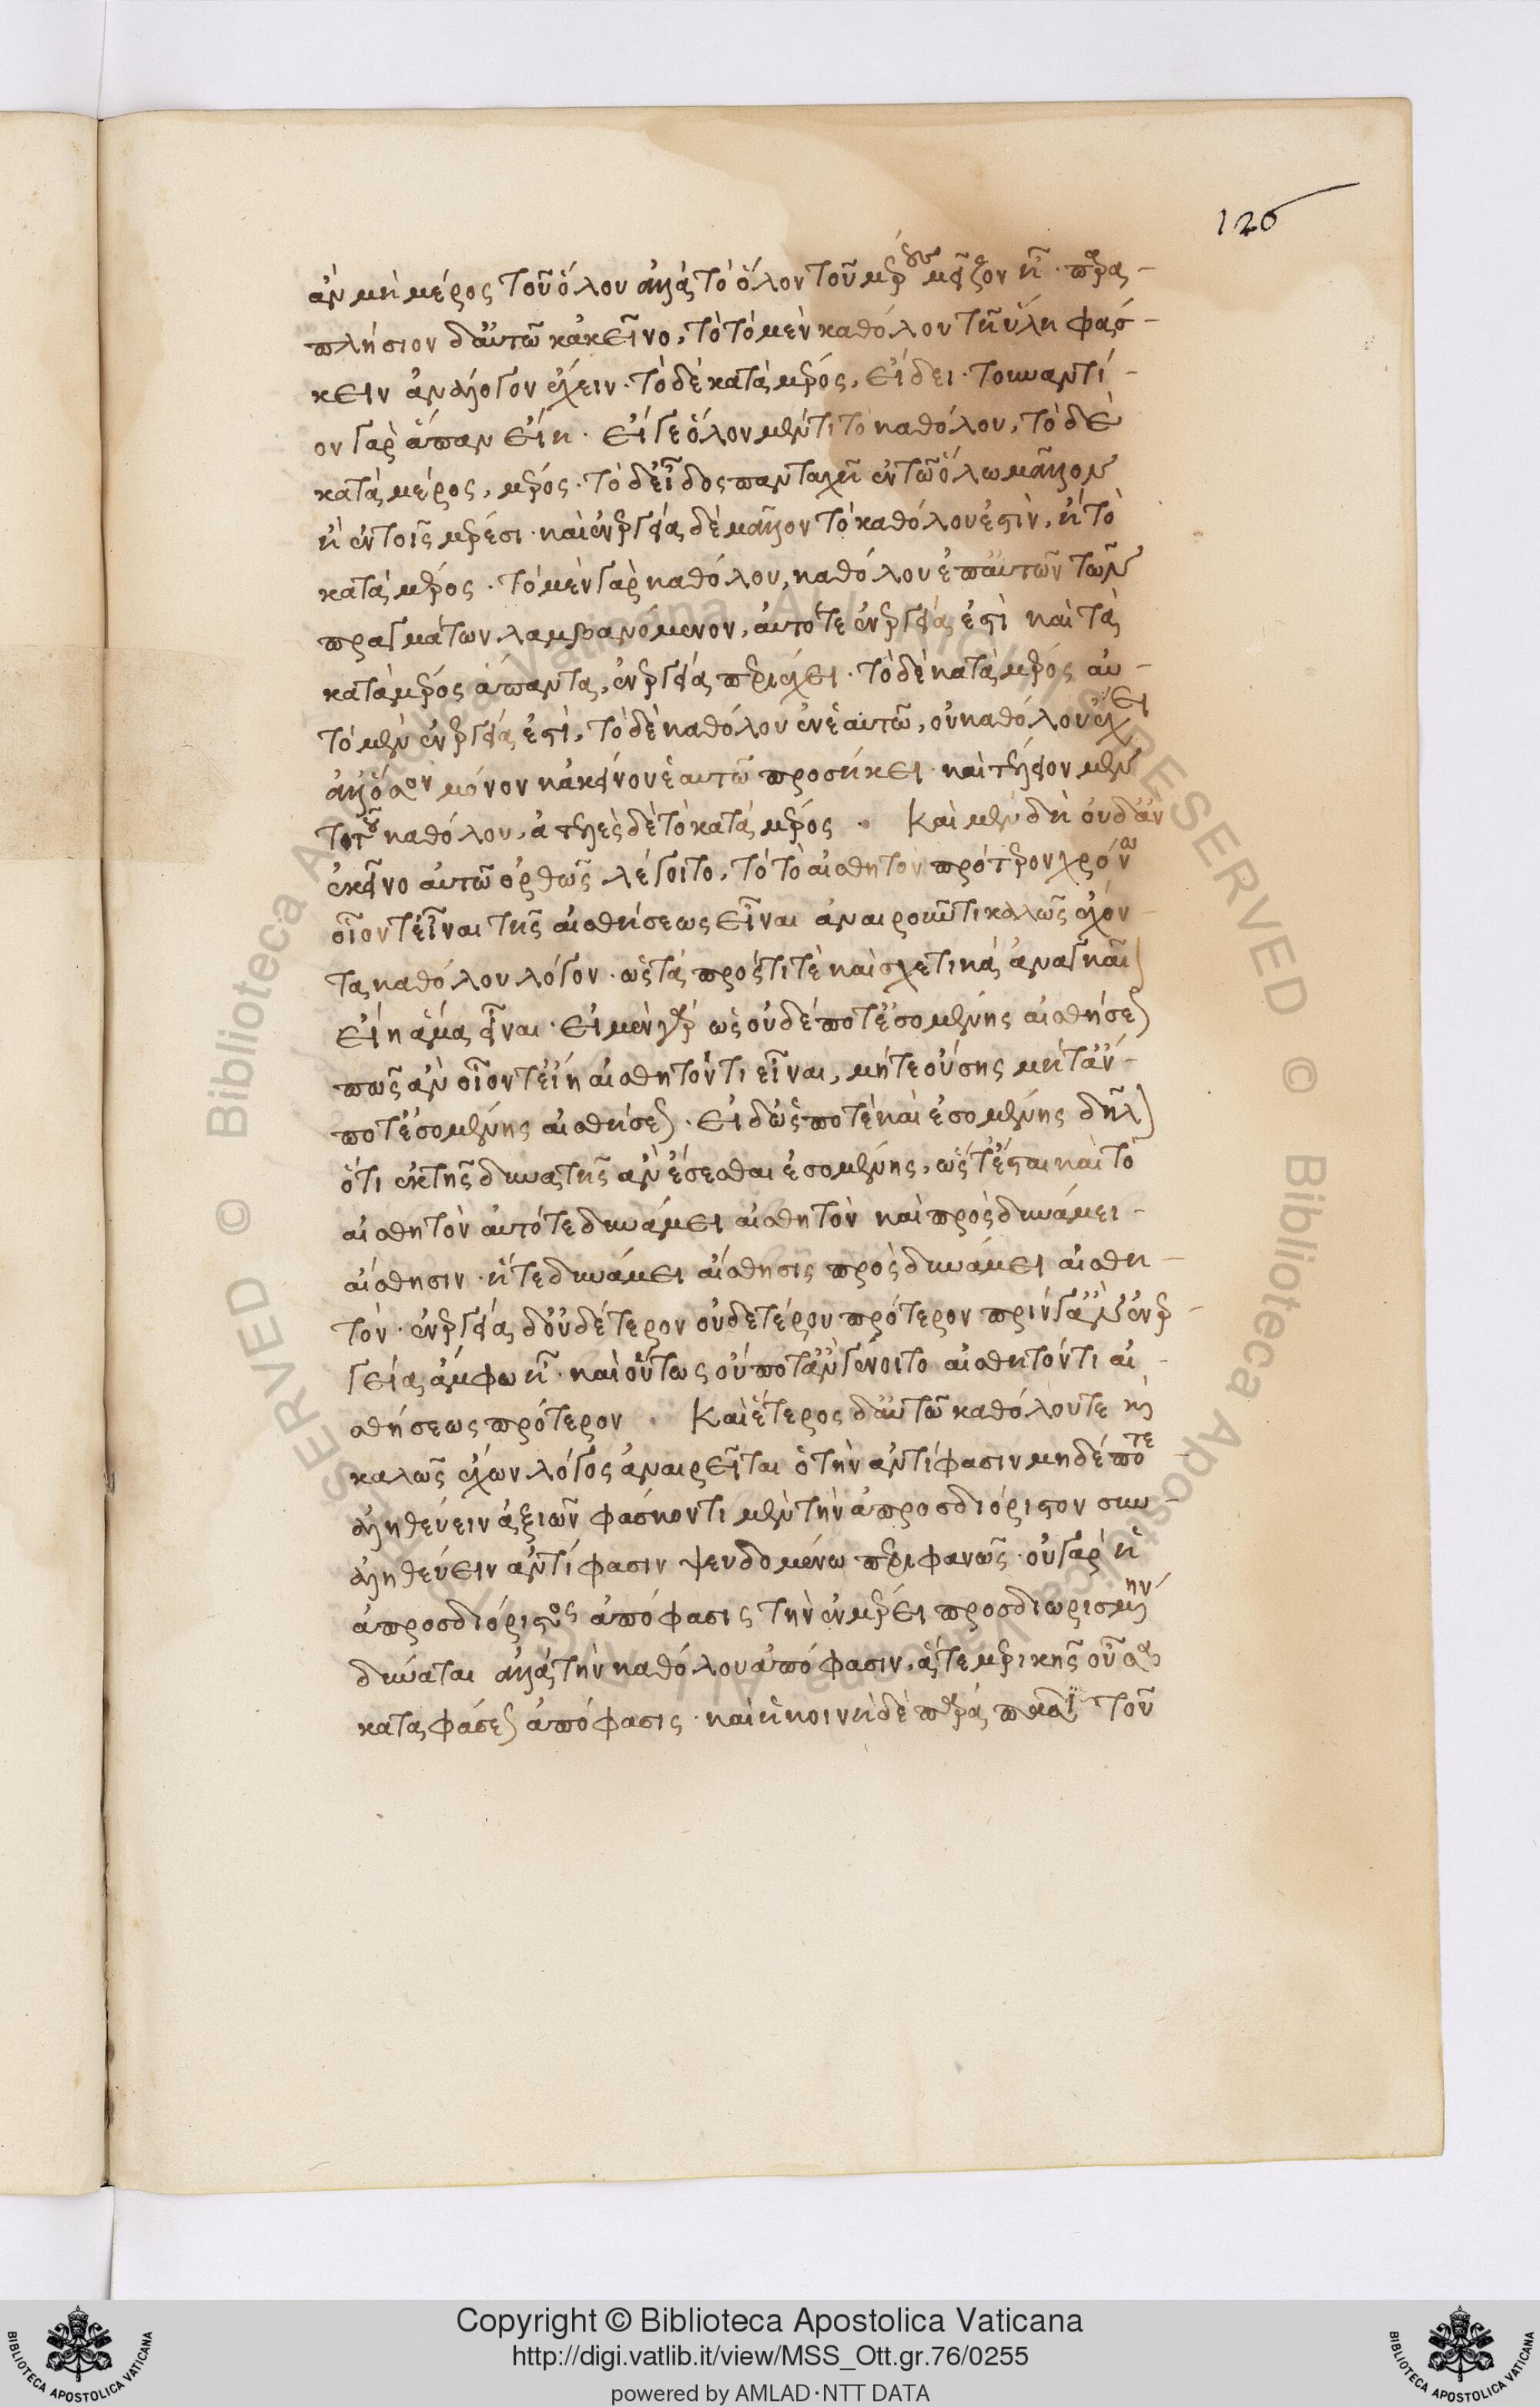 126
ἂν μὴ μέρος τοῦ ὅλου ἀλλὰ τὸ ὅλον τοῦ μέρους μεῖζον ᾖ · παρα-
πλήσιον δ' αὐτῶ κἀκεῖνο, τὸ τὸ μὲν καθόλου τῆ ὕλη φάσ-
κειν ἀνάλογον ἔχειν · τὸ δὲ κατὰ μέρος, εἴδει · τοὐναντί-
ον γὰρ ἅπαν εἴη · εἴγε ὅλον μέντι τὸ καθόλου, τὸ δὲ
κατὰ μέρος, μέρος · τὸ δ' εἶδος πανταχῆ ἐν τῶ ὅλω μᾶλλον
ἢ ἐν τοῖς μέρεσι · καὶ ἐνεργείᾳ δὲ μᾶλλον τὸ καθόλου ἐστὶν, ἢ τὸ
κατὰ μέρος · τὸ μὲν γὰρ καθόλου, καθόλου ἐπ' αὐτῶν τῶν
πραγμάτων λαμβανόμενον, αὐτό τε ἐνεργείᾳ ἐστὶ καὶ τὰ
κατὰ μέρος ἅπαντα, ἐνεργείᾳ περιέχει · τὸ δὲ κατὰ μέρος αὐ-
τὸ μὲν ἐνεργείᾳ ἐστὶ, τὸ δὲ καθόλου ἐν ἑαυτῶ, οὐ καθόλου ἔχει
ἀλλ' ὅσον μόνον κἀκείνου ἑαυτῶ προσήκει · καὶ τέλειον μὲν
τοι τὸ καθόλου, ἀτελὲς δὲ τὸ κατὰ μέρος · Καὶ μὲν δὴ οὐδ' ἂν
ἐκεῖνο αὐτῶ ὀρθῶς λέγοιτο, τὸ τὸ αἰσθητὸν πρότερον χρόνω
οἷόν τ' εἶναι τῆς αἰσθήσεως εἶναι ἀναιροῦντι καλῶς ἔχον-
τα καθόλου λόγον · ὡς τὰ πρός τι τὲ καὶ σχετικὰ ἀναγκαῖον
εἴη ἅμα εἶναι · εἰ μὲν γὰρ ὡς οὐδέποτ' ἐσομένης αἰσθήσεως
πῶς ἂν οἷόν τ' εἴη αἰσθητόν τι εἶναι, μήτε οὔσης μήτ' ἄν-
ποτ' ἐσομένης αἰσθήσεως · εἰ δ' ὥς ποτὲ καὶ ἐσομένης δῆλον
ὅτι ἐκ τῆς δυνατῆς ἂν ἔσεσθαι ἐσομένης, ὥστ' ἔσται καὶ τὸ
αἰσθητὸν αὐτό τε δυνάμει αἰσθητὸν καὶ πρὸς δυνάμει-
αἴσθησιν · ἥ τε δυνάμει αἴσθησις πρὸς δυνάμει αἰσθη-
τόν · ἐνεργείᾳ δ' οὐδέτερον οὐδετέρου πρότερον πρίν γ' ἂν ἐνερ-
γείᾳ ἄμφω ᾖ · καὶ οὕτως οὔποτ' ἂν γένοιτο αἰσθητόν τι αἰ-
σθήσεως πρότερον · Καὶ ἕτερος δ' αὐτῶ καθόλου τε καὶ
καλῶς ἔχων λόγος ἀναιρεῖται ὁ τὴν ἀντίφασιν μηδέποτε
ἀληθεύειν ἀξιῶν φάσκοντι μὲν τὴν ἀπροσδιόριστον συν-
αληθεύειν ἀντίφασιν ψευδομένω περιφανῶς · οὐ γὰρ ἡ
ἀπροσδιόριστος ἀπόφασις τὴν ἐν μέρει προσδιωρισμένην
δύναται ἀλλὰ τὴν καθόλου ἀπόφασιν, ἅτε μερικῆς οὖσα
καταφάσεως ἀπόφασις · καὶ ἡ κοινὴ δὲ παρὰ πᾶσι τοῦ
Copyright © Biblioteca Apostolica Vaticana
http://digi.vatlib.it/view/MSS_Ott.gr.76/0255
powered by AMLAD·NTT DATA